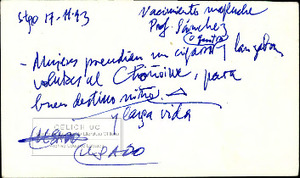 Stgo 17-11-93
Nacimiento mapuche
Prof. Sánchez
- Mujeres prendían un cigarro y lanzaban
volutas al Choñoiwe, para
buen destino
y larga vida
CELICH UC
USADO
USADO